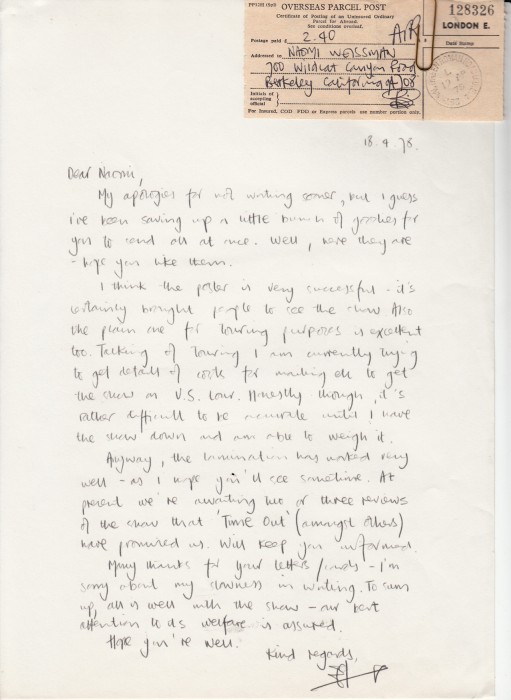 PP112H (840) OVERSEAS PARCEL POST
Certificate of Posting of an Uninsured Ordinary
Parcel for Abroad.
See conditions overleaf.
Postage paid £ 2.40 AIR
Addressed to NAOMI WEISSMAN
700 Wildcat Canyon Road
Berkeley California 94708
Initials of
accepting
official
For Insured, COD PDO or Express parcels use number portion only.
128326
LONDON E.
Date Stamp
18.4.78.
Dear Naomi,
My apologies for not writing sooner, but I guess
i've been saving up a little bunch of goodies for
you to send all at once. Well, here they are
- hope you like them.
I think the poster is very successful - it's
certainly brought people to see the show. Also
the plain one for touring purposes is excellent
too. Talking of touring I am currently trying
to get details of costs for mailing etc to get
the show on U.S. tour. Honestly though, it's
rather difficult to be accurate until I have
the show down and am able to weigh it.
Anyway, the lamination has worked very
well - as I hope you'll see sometime. At
present we're awaiting two or three reviews
of the show that 'Time Out' (amongst others)
have promised us. Will keep you informed.
Many thanks for your letters/cards - I'm
sorry about my slowness in writing. To sum
up, all is well with the show - our best
attention to its welfare is assured.
Hope you're well.
Kind regards,